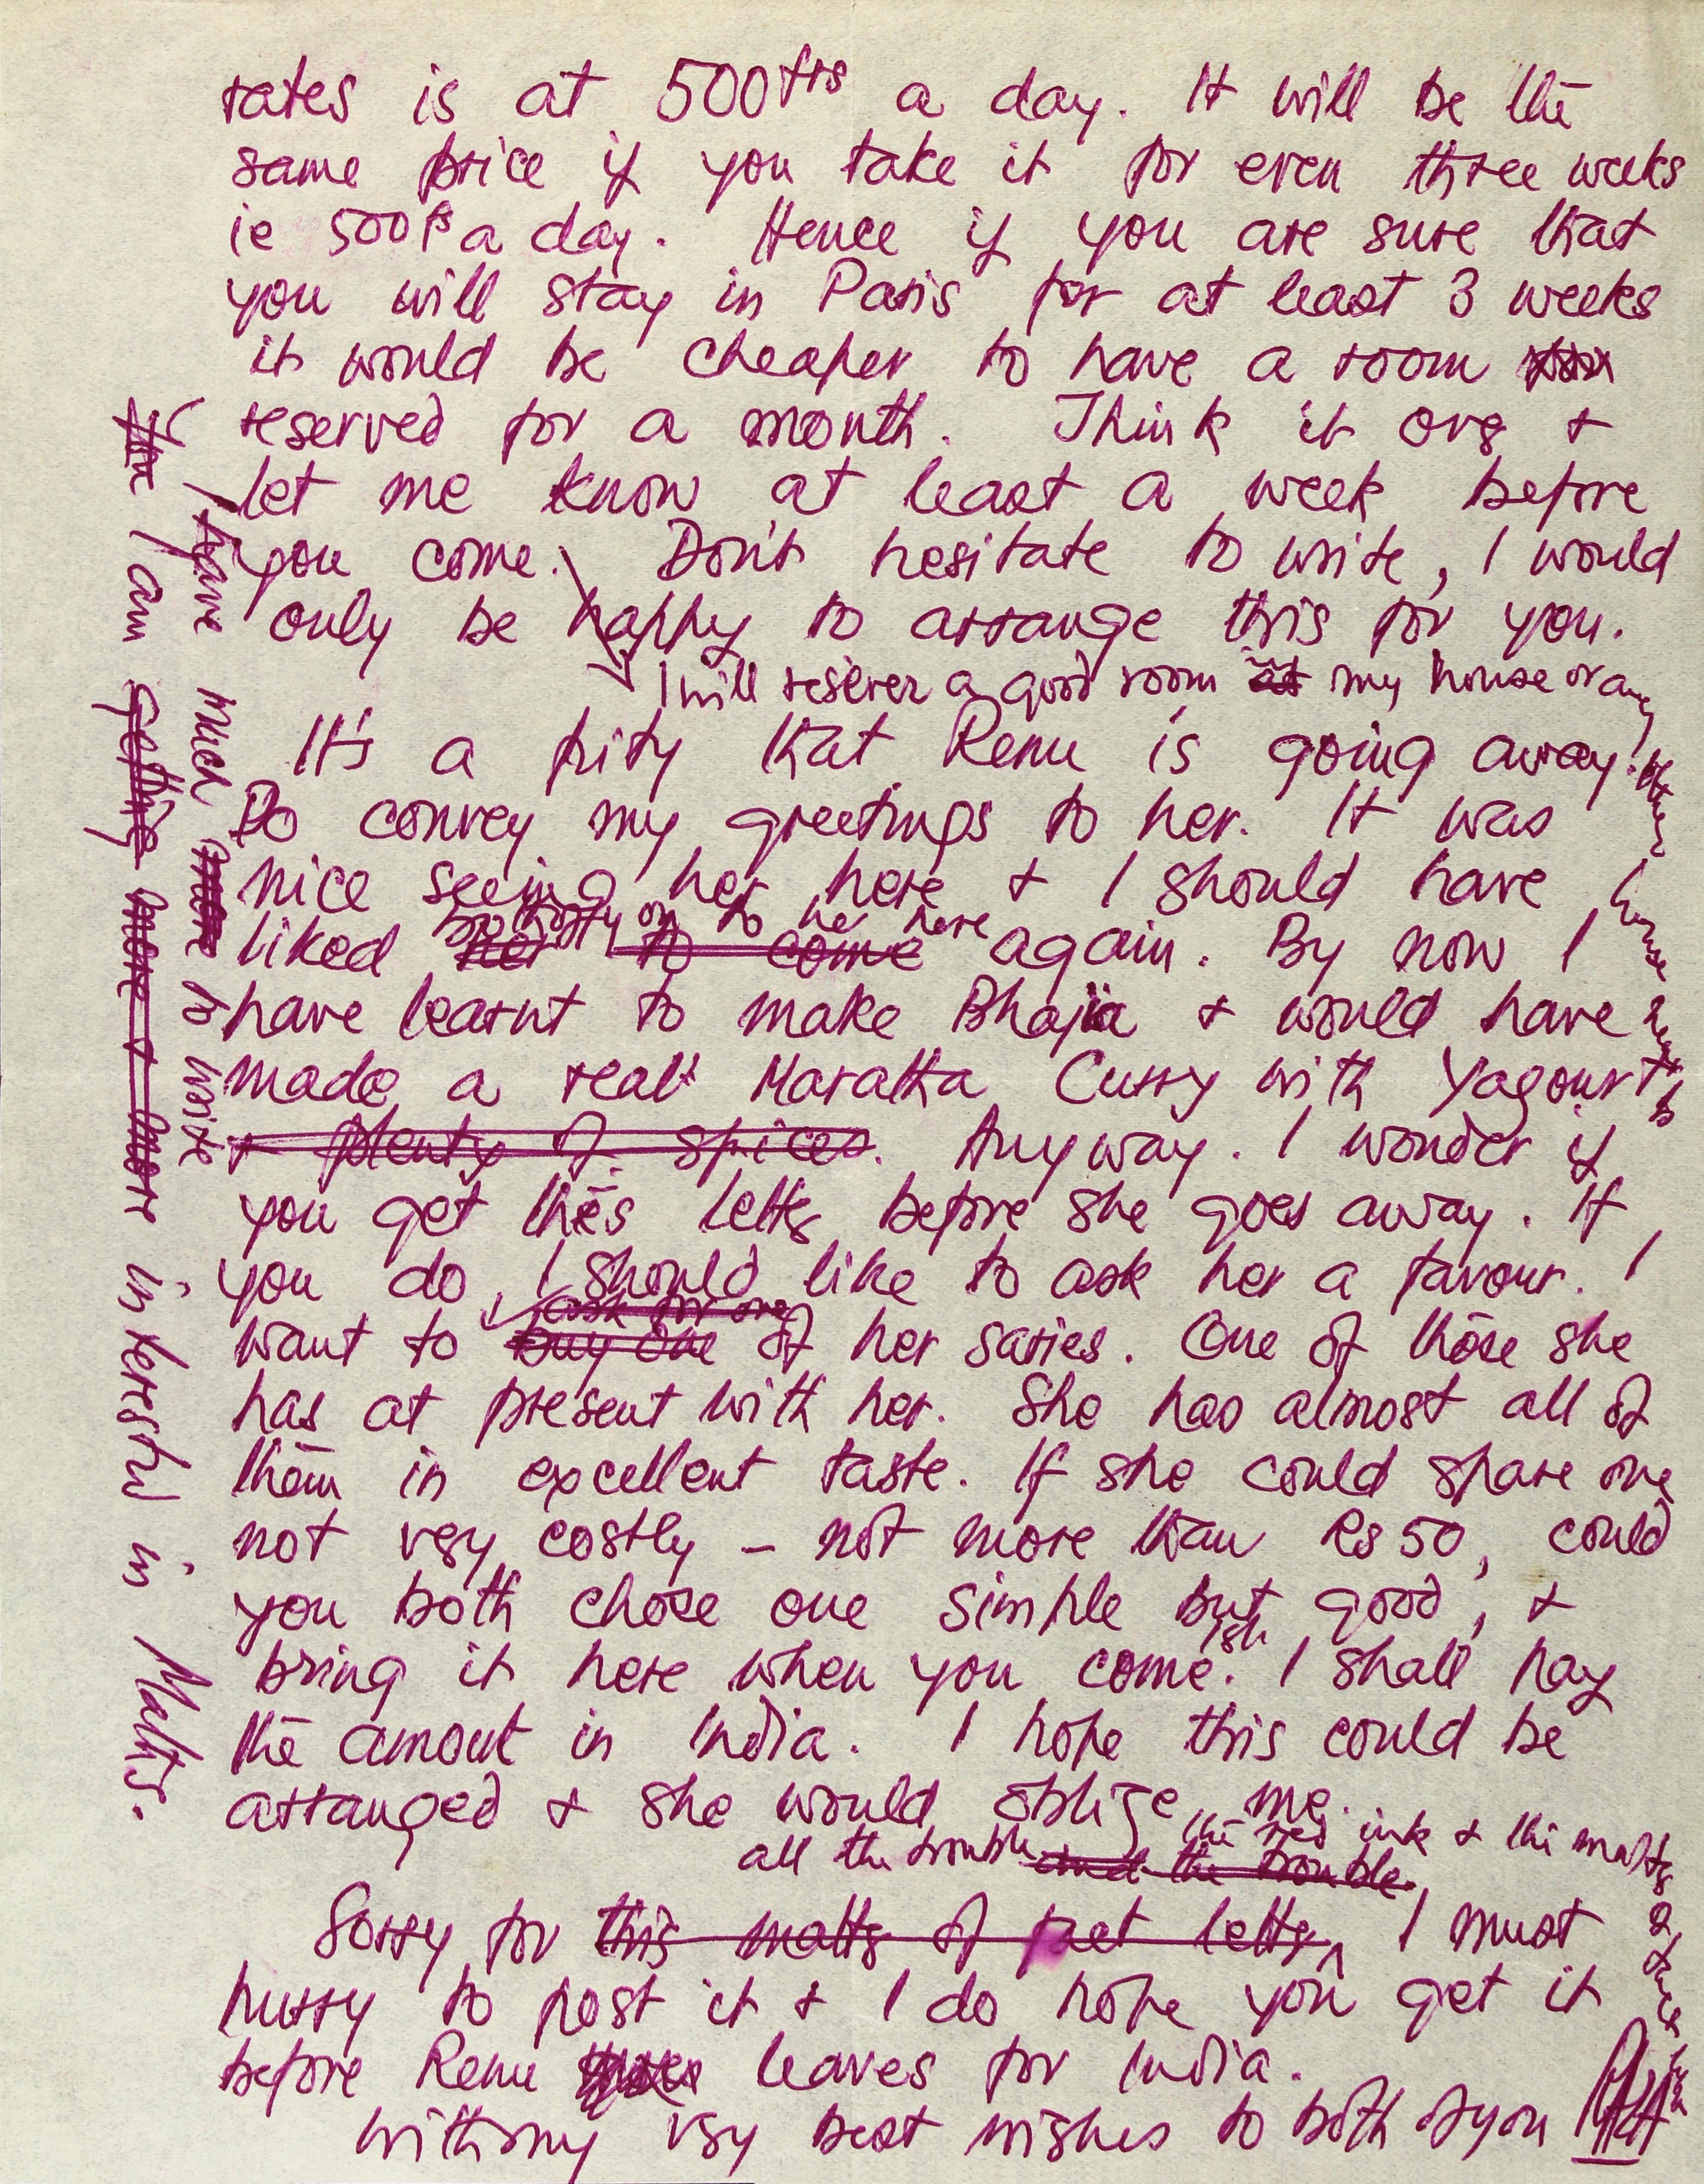 rates is at 500frs a day. It will be the
same price if you take it for even three weeks
ie 500fs a day. Hence if you are sure that
you will stay in Paris for at least 3 weeks
it would be cheaper to have a room
reserved for a month. Think it over &
let me know at least a week before
you come. Don't hesitate to write, I would
only be happy to arrange this for you.
I will reserver a good room in my house or any
other house next to
It's a pity that Renu is going away!
Do convey my greetings to her. It was
nice seeing her here & I should have
liked her to come again. By now I
have learnt to make Bhajia & would have
made a real Maratta Curry with Yagourt
& plenty of spices. Anyway. I wonder if
you get this letter before she goes away. If
you do, I should like to ask her a favour. I
ask for one
want to buy one of her saries. One of those she
has at present with her. She has almost all of
them in excellent taste. If she could spare one
not very costly – not more than Rs 50, could
you both chose one simple but good, &
ish
bring it here when you come. I shall pay
the amout in India. I hope this could be
arranged & she would oblige me.
all the trouble and the trouble. the red ink & the matter
Sorry for this matter of fact letter, I must
hurry to post it & I do hope you get it
before Renu leaves for India.
with my very best wishes to both of you
I have much more to write
I am getting more & more interested in Maths.